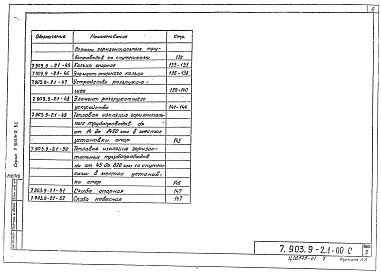 6
Обозначение Наименование Стр.
трубопроводов со спутниками 132
7.903.9-2.1-45 Кольцо опорное 133-135
7.903.9-2.1-46 Элемент опорного кольца 136-138
7.903.9-2.1-47 Устройство разгружаю-
щее 139-140
7.903.9-2.1-48 Элемент разгружающего
устройства 141-144
7.903.9-2.1-49 Тепловая изоляция горизонталь-
ных трубопроводов dн
от 14 до 1420 мм в местах
установки опор 145
7.903.9-2.1-50 Тепловая изоляция горизон-
тальных трубопроводов
dн от 45 до 820 мм со спутни-
ками в местах установ-
ки опор 146
7.903.9-2.1-51 Скоба опорная 147
7.903.9-2.1-52 Скоба навесная 147
7.903.9-2.1-00 С
Лист
5
Формат А3